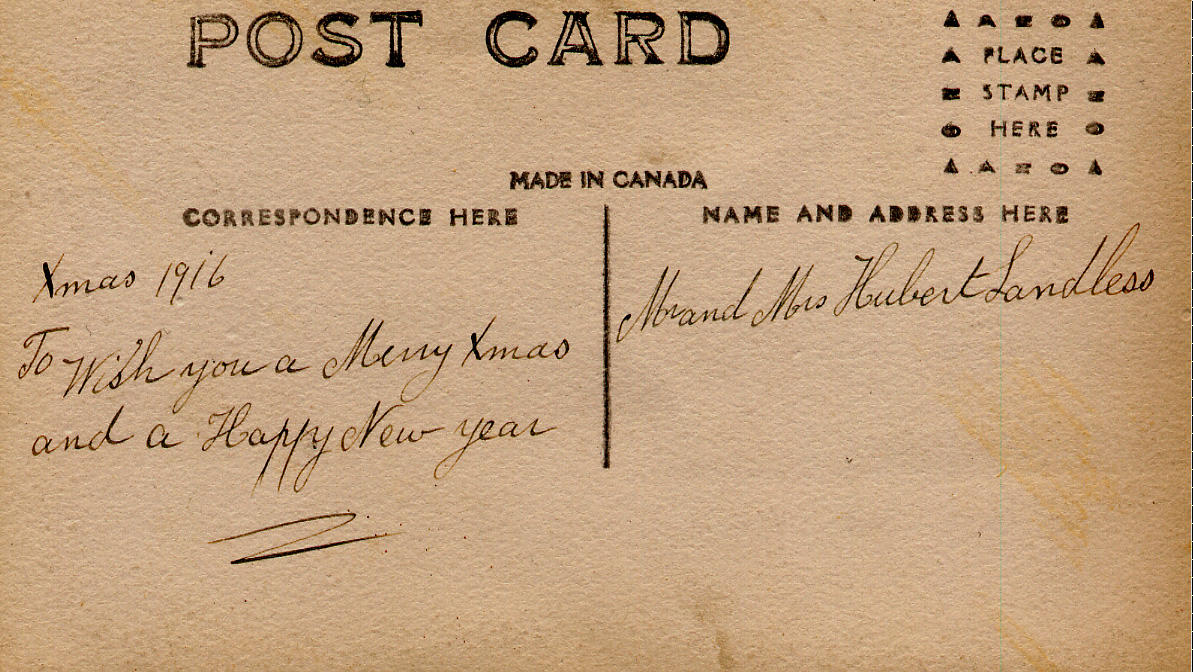 POST CARD
AZO
PLACE
STAMP
HERE
AZO
MADE IN CANADA
CORRESPONDENCE HERE
NAME AND ADDRESS HERE
Xmas 1916
To Wish you a Merry Xmas
and a Happy New year
Mr and Mrs Hubert Landless